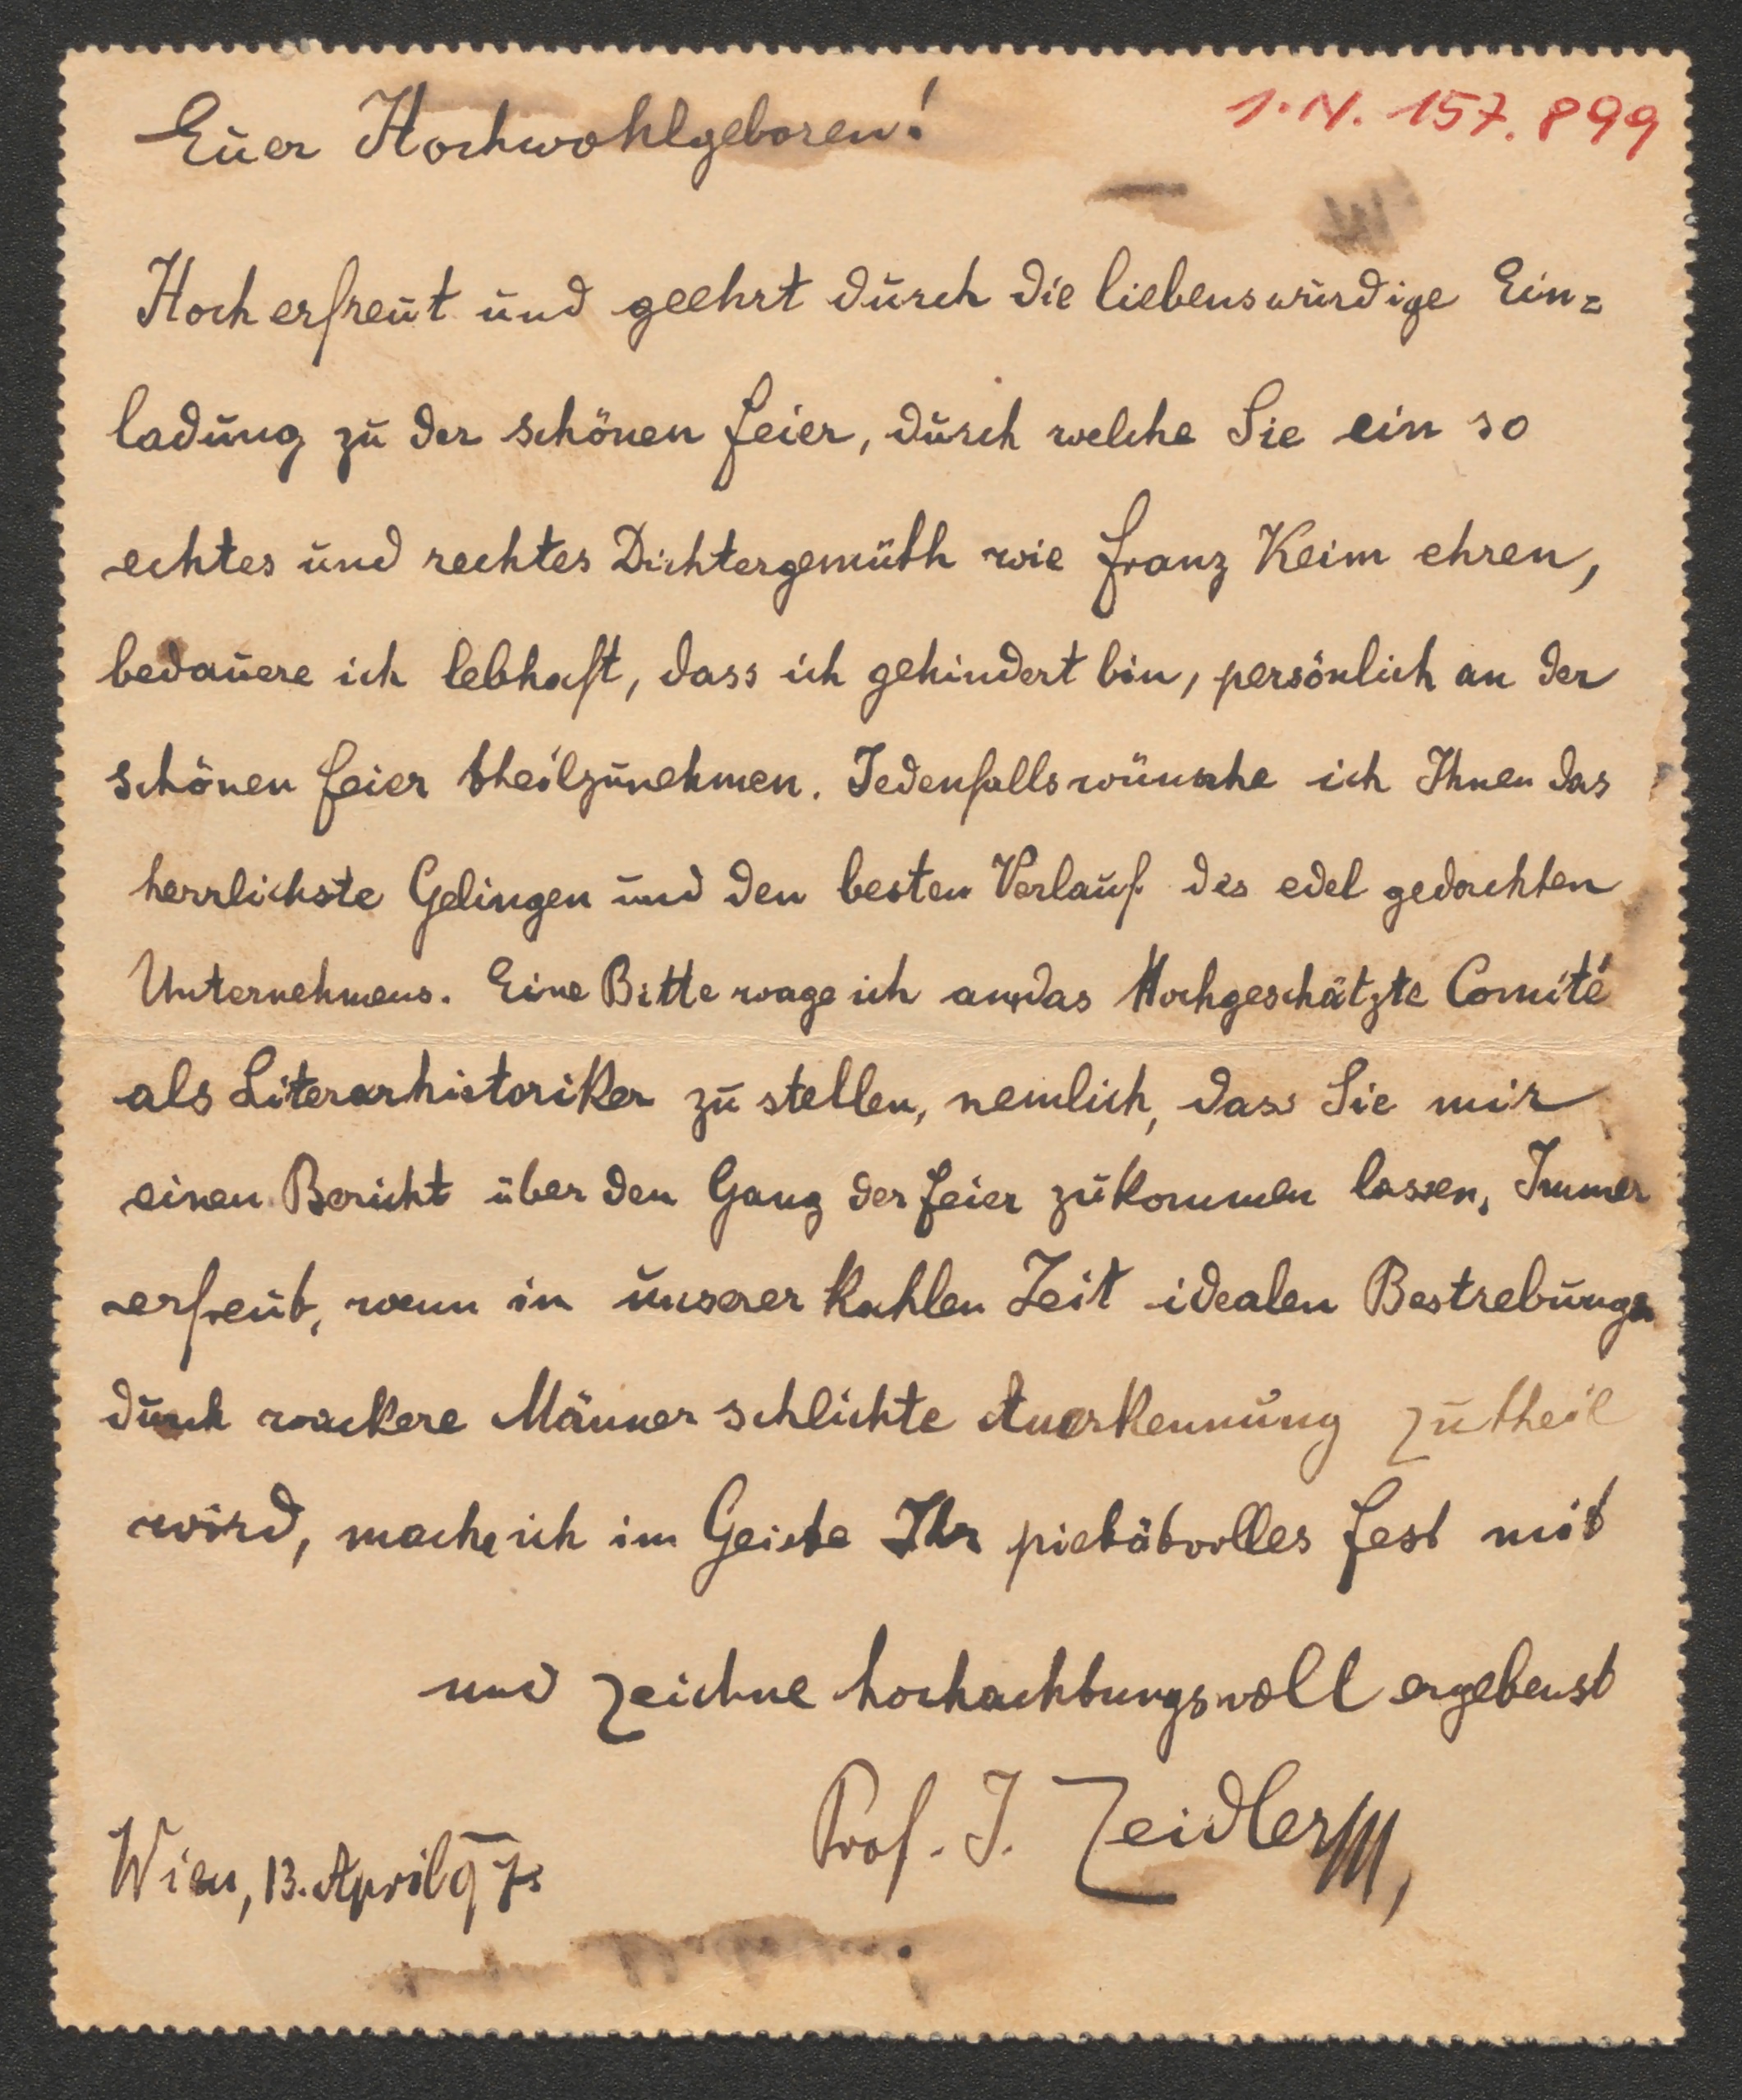 I.N. 157.899
Euer Hochwohlgeboren!
Hoch erfreut und geehrt durch die liebenswürdige Ein=
ladung zu der schönen Feier, durch welche Sie ein so
echtes und rechtes Dichtergemüth wie Franz Keim ehren,
bedauere ich lebhaft, dass ich gehindert bin, persönlich an der
schönen Feier theilzunehmen. Jedenfalls wünsche ich Ihnen das
herrlichste Gelingen und den besten Verlauf des edel gedachten
Unternehmens. Eine Bitte wage ich an das Hochgeschätzte Comité
als Literarhistoriker zu stellen, nemlich, dass Sie mir
einen Bericht über den Gang der Feier zukommen lassen. Immer
erfreut, wenn in unserer kahlen Zeit idealen Bestrebungen
durch wackere Männer schlichte Anerkennung zutheil
wird, mache ich im Geiste Ihr pietätvolles Fest mit
und zeichne hochachtungsvoll ergebenst
Prof. J. Zeidler
Wien, 13. April 97.